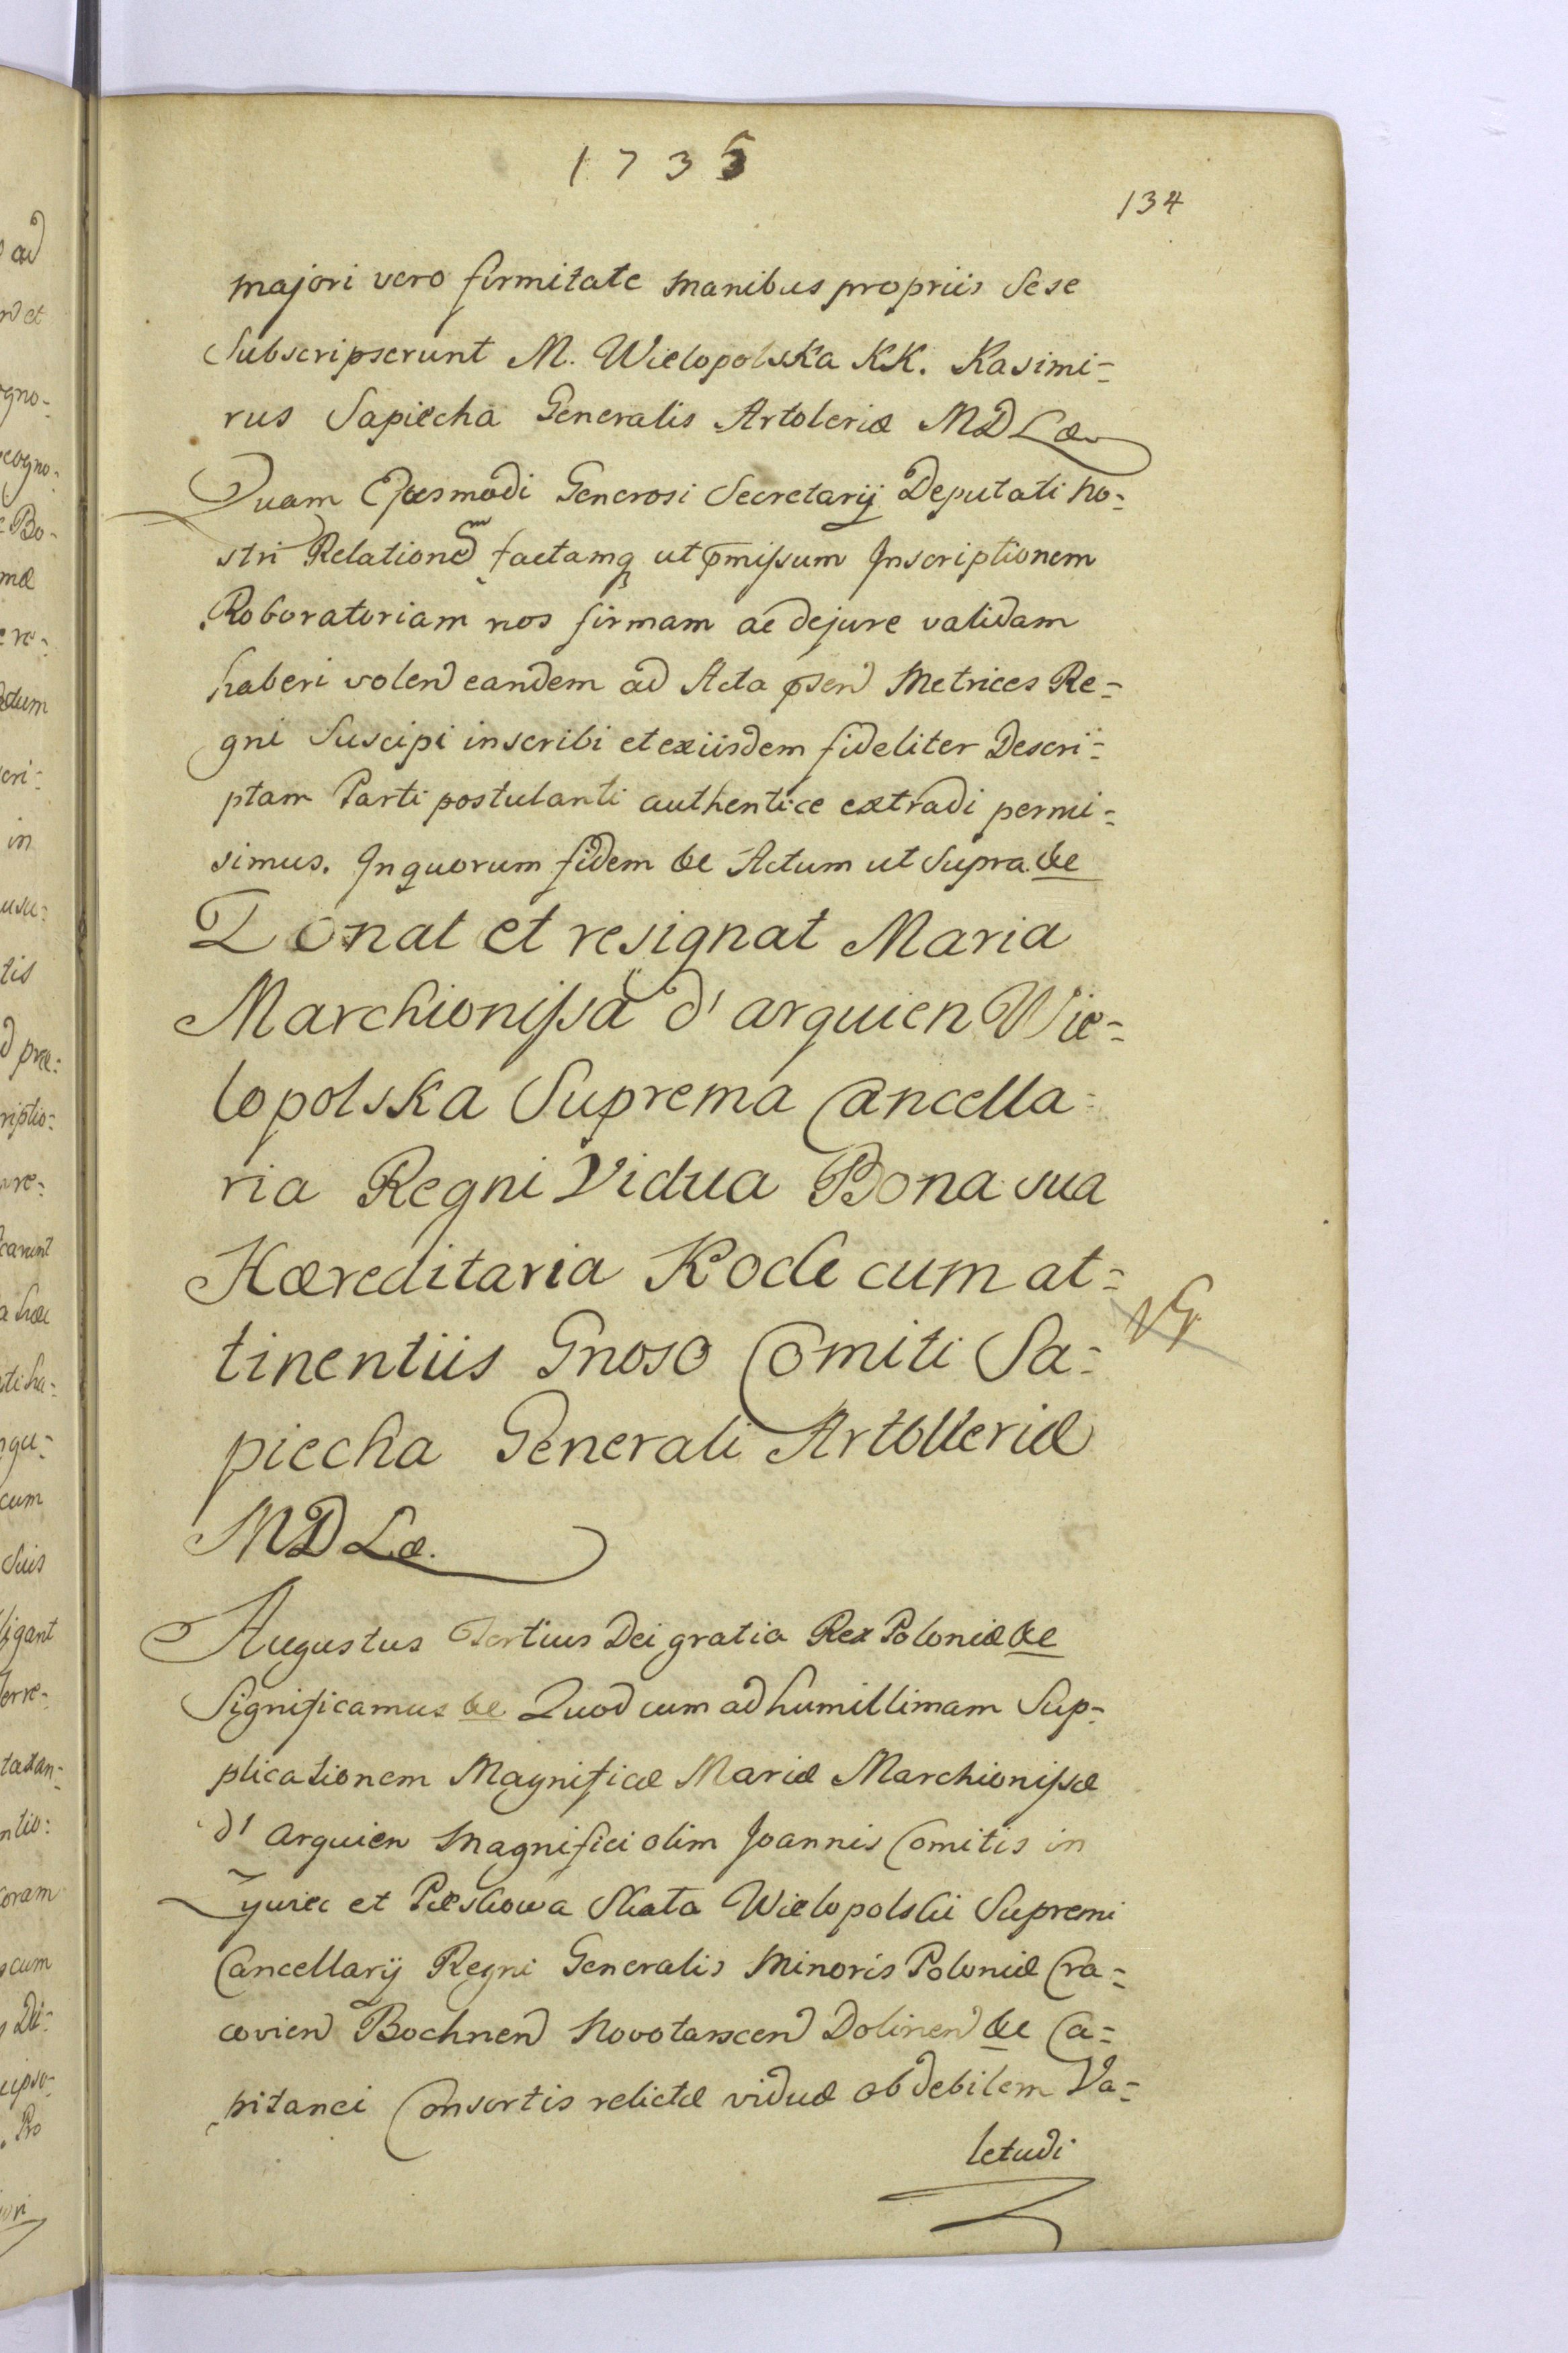 1735
134
majori vero firmitate manibus propriis Sese
Subscripserunt M. Wielopolska KK. Kasimi=
rus Sapiecha Generalis Artoleriæ MDLæ
Quam Ejusmodi Generosi Secretarij Deputati no=
stri Relationem factamq ut p̄missum Inscriptionem
Roboratoriam nos firmam ac dejure validam
haberi volen eandem ad Acta p̄sen Metrices Re=
gni Suscipi inscribi et exiisdem fideliter Descri=
ptam Parti postulanti authentice extradi permi=
simus. Inquorum fidem &c Actum ut Supra. &c
Donat et resignat Maria
Marchionissa d' arquien Wie=
lopolska Suprema Cancella=
ria Regni Vidua Bona sua
Hæreditaria Kode cum at=
tinentiis Gnoso Comiti Sa=
piecha Generali Artolleriæ
MDLæ.
Augustus Tertius Dei gratia Rex Poloniæ &c
Significamus &c Quod cum ad humillimam Sup=
plicationem Magnificæ Mariæ Marchionissæ
d' Arquien Magnifici olim Joannis Comitis in
Zywiec et Pieskowa Skata Wielopolski Supremi
Cancellarij Regni Generalis Minoris Poloniæ Cra=
covien Bochnen Novotarscen Dolinen &c Ca=
pitanei Consortis relictæ viduæ ob debilem Va=
letudi